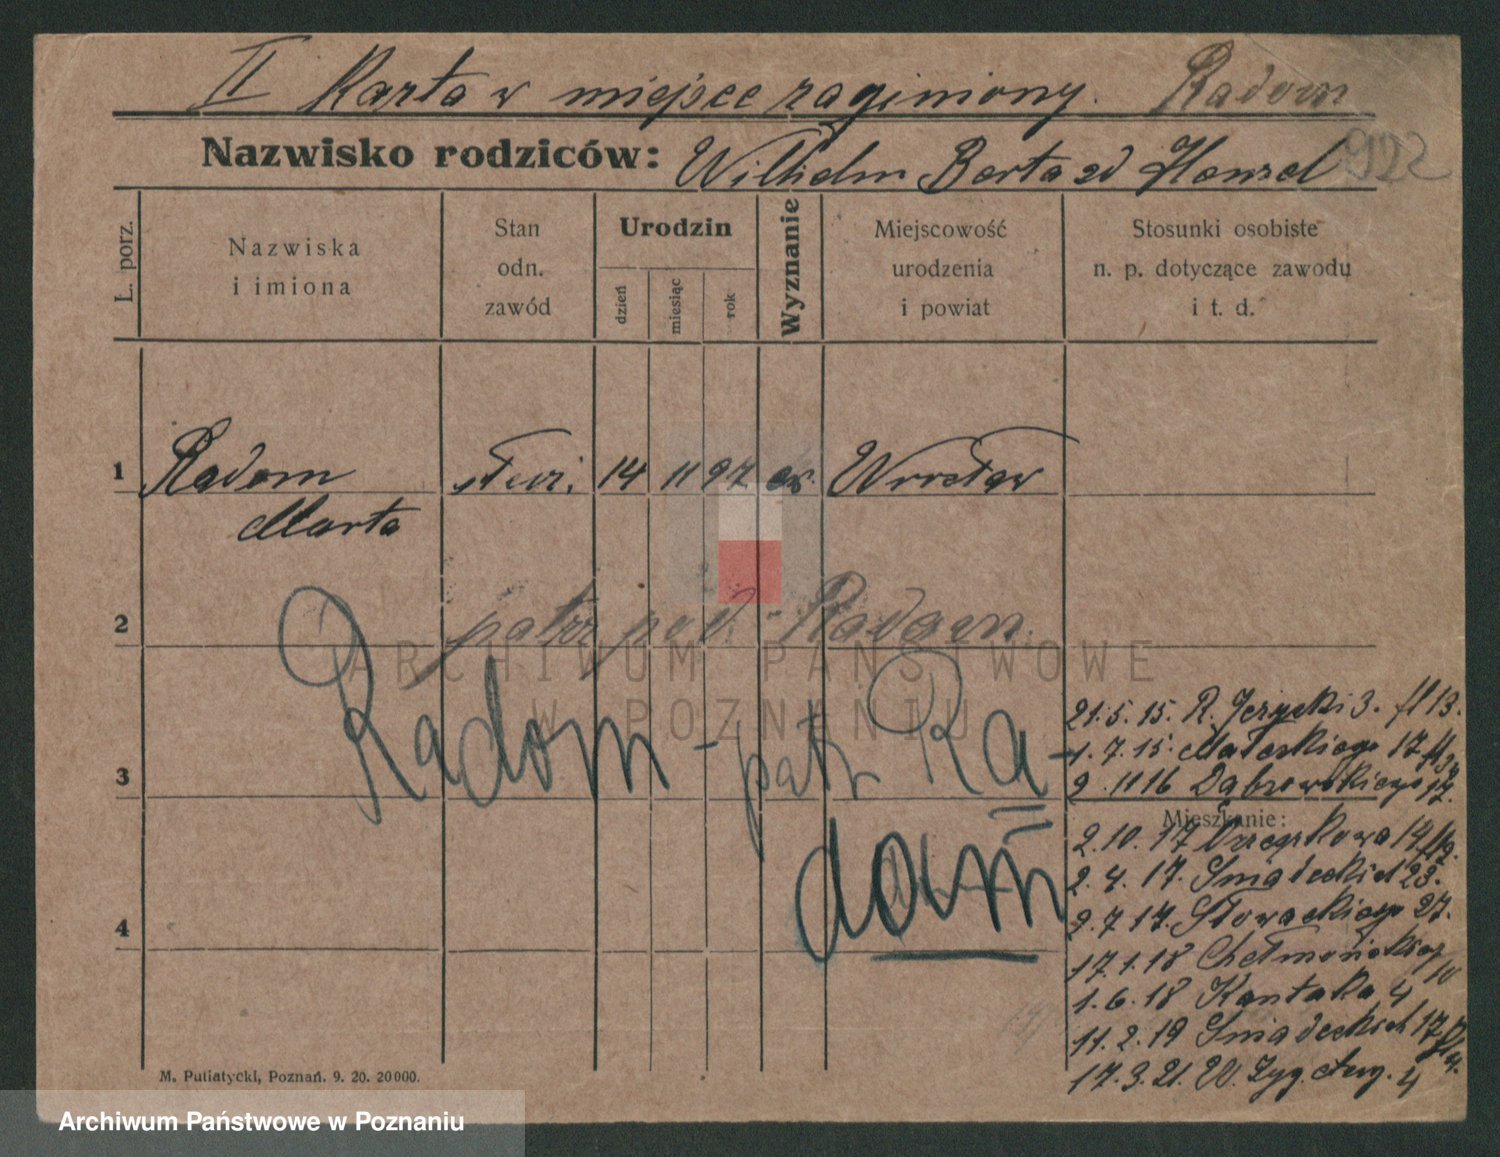 II Karta w miejsce zaginiony. Radom
922
Nazwisko rodziców: Wilhelm Berta zd Hensel
L. porz.
Nazwiska
i imiona
Stan
odn.
zawód
Urodzin
dzień
miesiąc
rok
Wyznanie
Miejscowość
urodzenia
i powiat
Stosunki osobiste
n. p. dotyczące zawodu
i t. d.
1 Radom służ. 14 11 97 ew. Wrocław
Marta
2 patrz pod. Radom.
Radom - patr Ra
dom
3
4
21.5.15. R. Jerycki 3. 13.
1.7.15. Matejskiego 17
9.11 16 Dąbrowskiego 17.
Mieszkanie:
2.10.17 Orzeszkowa 14
2.4.17. Śniadeckich 23.
2.7 17. Słowackiego 27.
17.1.18 Chełmońskiego 10
1.6.18 Kantaka 4
11.2.19 Śniadeckich 17
17.3.21. W. Zyg. Aug. 4
M. Putiatycki, Poznań. 9. 20. 20000.
ARCHIWUM PAŃSTWOWE
W POZNANIU
Archiwum Państwowe w Poznaniu